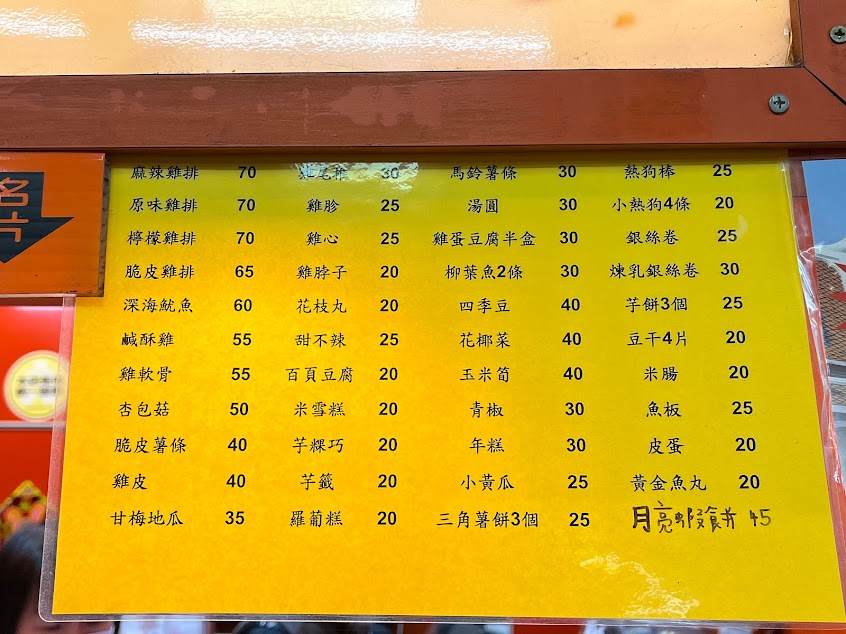 麻辣雞排 70 30 馬鈴薯條 30 熱狗棒 25
原味雞排 70 雞胗 25 湯圓 30 小熱狗4條 20
檸檬雞排 70 雞心 25 雞蛋豆腐半盒 30 銀絲卷 25
脆皮雞排 65 雞脖子 20 柳葉魚2條 30 煉乳銀絲卷 30
深海魷魚 60 花枝丸 20 四季豆 40 芋餅3個 25
鹹酥雞 55 甜不辣 25 花椰菜 40 豆干4片 20
雞軟骨 55 百頁豆腐 20 玉米筍 40 米腸 20
杏包菇 50 米雪糕 20 青椒 30 魚板 25
脆皮薯條 40 芋粿巧 20 年糕 30 皮蛋 20
雞皮 40 芋籤 20 小黃瓜 25 黃金魚丸 20
甘梅地瓜 35 羅蔔糕 20 三角薯餅3個 25 月亮蝦餅 45